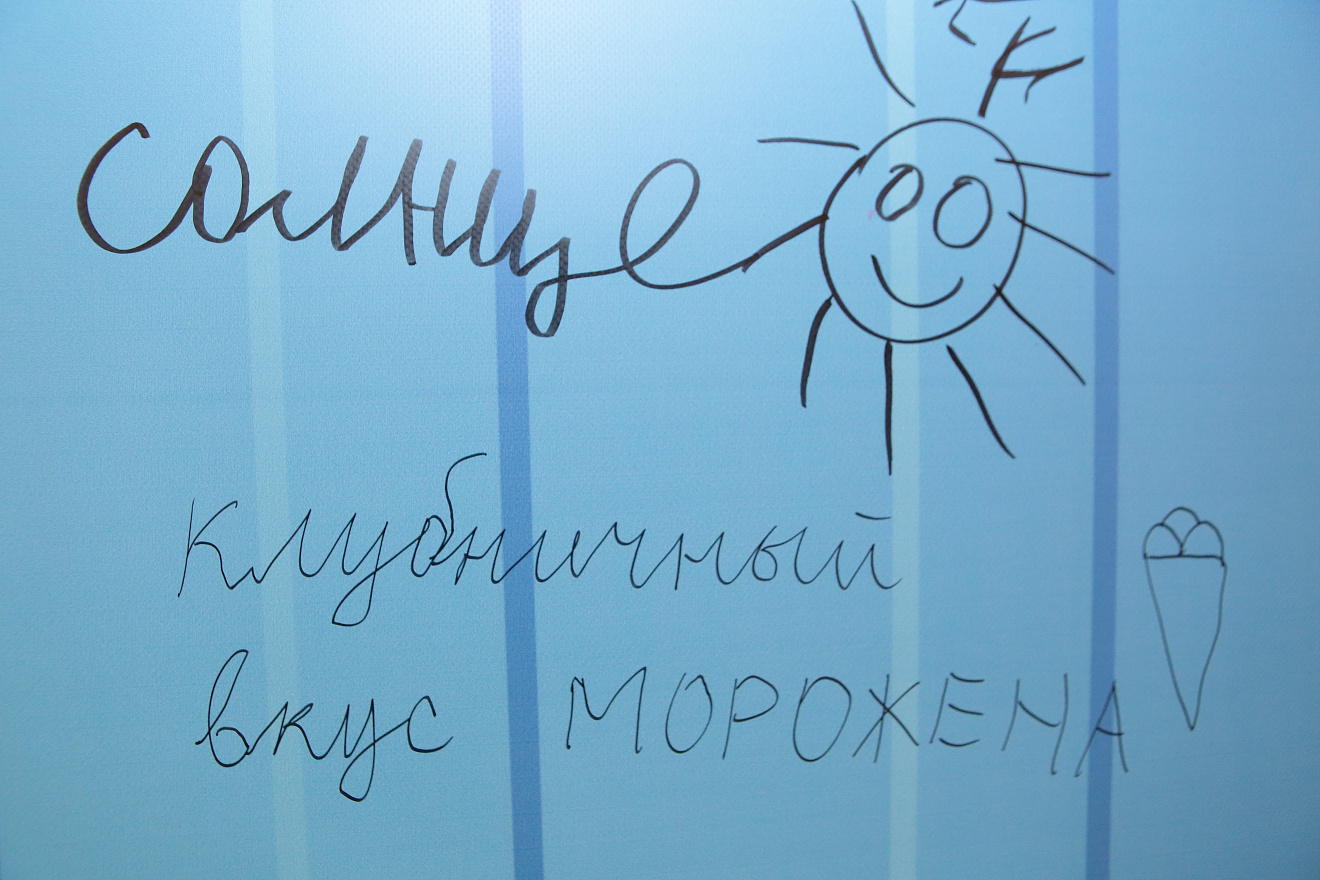 солнце
клубничный
вкус МОРОЖЕНА